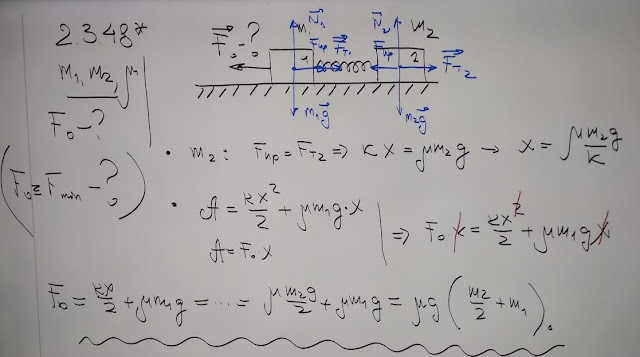 2.3.48*
m₁, m₂, μ
F₀ - ?
(F₀ ≡ Fmin - ?)
F₀ - ? N₁ m₁ N₂ m₂
1 Fупр Fт₁ Fупр 2 Fт₂
m₁g m₂g
• m₂: Fупр = Fт₂ ⇒ kx = μm₂g → x = μm₂g/k
• A = kx²/2 + μm₁g·x
A = F₀·x
⇒ F₀·x = kx²/2 + μm₁gx
F₀ = kx/2 + μm₁g = ... = μ m₂g/2 + μm₁g = μg (m₂/2 + m₁).